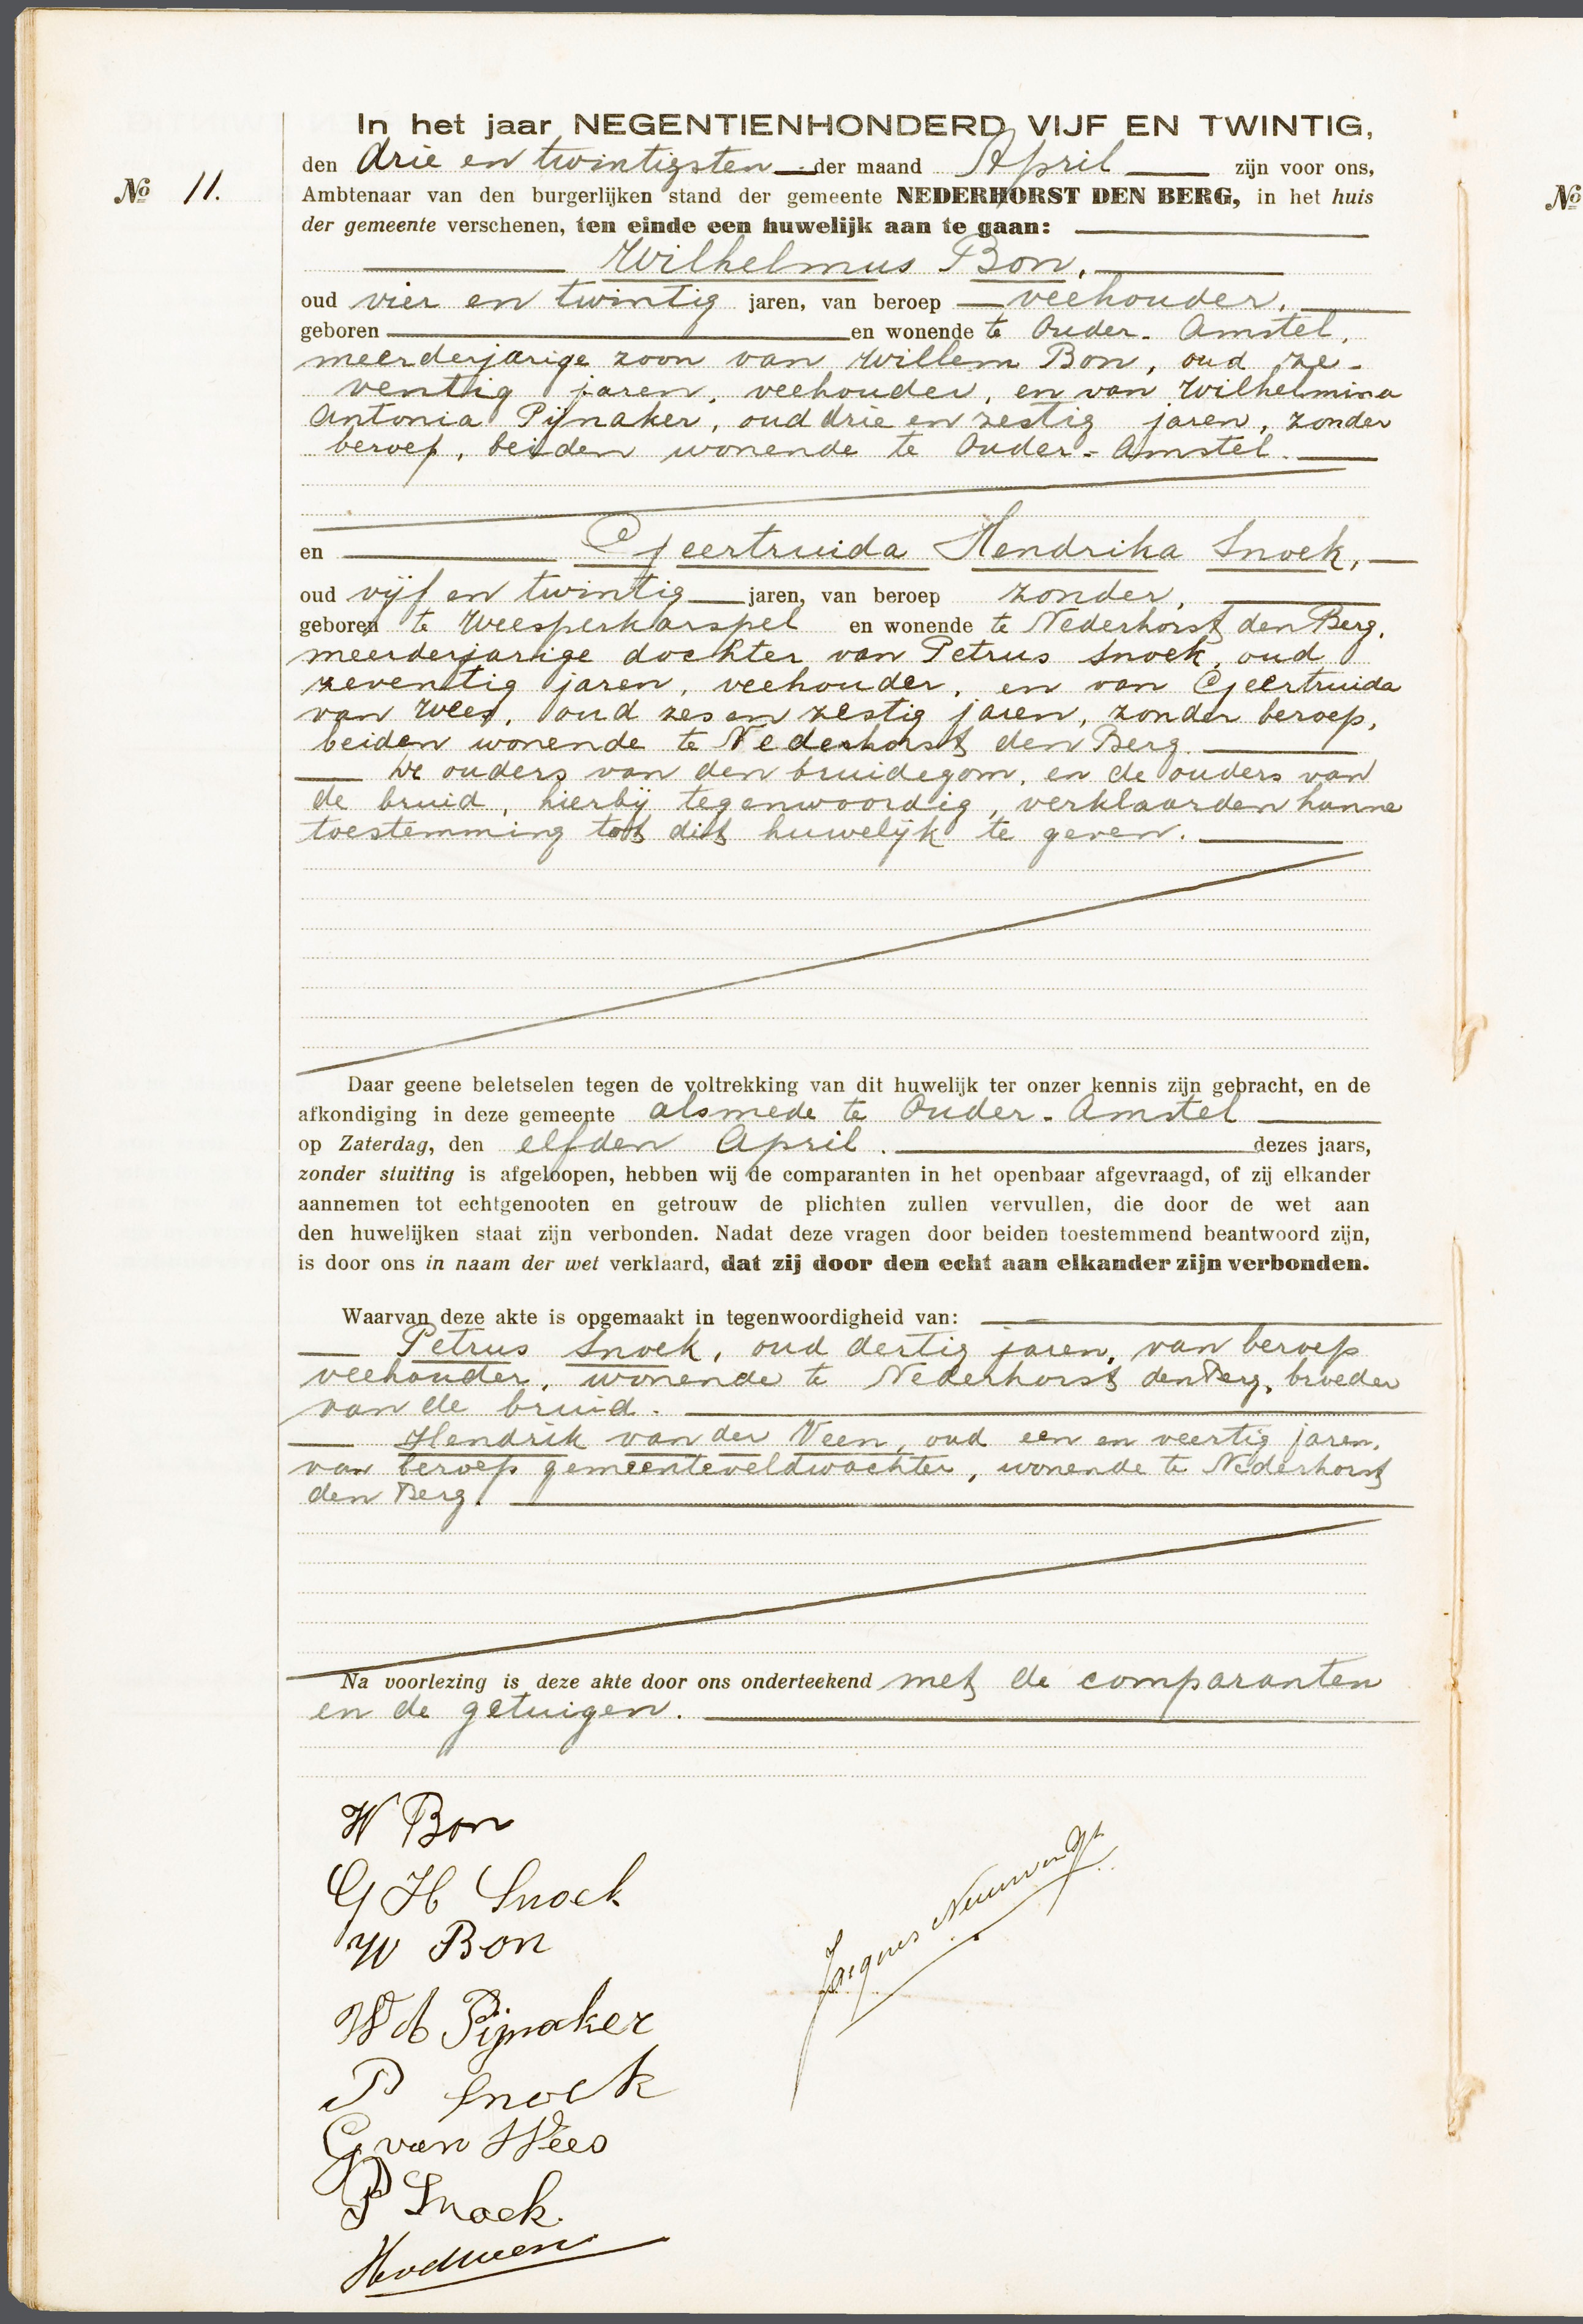 In het jaar NEGENTIENHONDERD VIJF EN TWINTIG,
den drie en twintigsten der maand April zijn voor ons,
No 11.
Ambtenaar van den burgerlijken stand der gemeente NEDERHORST DEN BERG, in het huis
No
der gemeente verschenen, ten einde een huwelijk aan te gaan:
Wilhelmus Bon,
oud vier en twintig jaren, van beroep veehouder,
geboren en wonende te Ouder-Amstel,
meerderjarige zoon van Willem Bon, oud ze-
ventig jaren, veehouder, en van Wilhelmina
Antonia Pijnaker, oud drie en zestig jaren, zonder
beroep, beiden wonende te Ouder-Amstel.
en Geertruida Hendrika Snoek,
oud vijf en twintig jaren, van beroep zonder,
geboren te Weesperkarspel en wonende te Nederhorst den Berg,
meerderjarige dochter van Petrus Snoek, oud
zeventig jaren, veehouder, en van Geertruida
van Wees, oud zes en zestig jaren, zonder beroep,
beiden wonende te Nederhorst den Berg.
De ouders van den bruidegom, en de ouders van
de bruid, hierbij tegenwoordig, verklaarden hunne
toestemming tot dit huwelijk te geven.
Daar geene beletselen tegen de voltrekking van dit huwelijk ter onzer kennis zijn gebracht, en de
afkondiging in deze gemeente alsmede te Ouder-Amstel
op Zaterdag, den elfden April. dezes jaars,
zonder stuiting is afgeloopen, hebben wij de comparanten in het openbaar afgevraagd, of zij elkander
aannemen tot echtgenooten en getrouw de plichten zullen vervullen, die door de wet aan
den huwelijken staat zijn verbonden. Nadat deze vragen door beiden toestemmend beantwoord zijn,
is door ons in naam der wet verklaard, dat zij door den echt aan elkander zijn verbonden.
Waarvan deze akte is opgemaakt in tegenwoordigheid van:
Petrus Snoek, oud dertig jaren, van beroep
veehouder, wonende te Nederhorst den Berg, broeder
van de bruid.
Hendrik van der Veen, oud een en veertig jaren,
van beroep gemeenteveldwachter, wonende te Nederhorst
den Berg.
Na voorlezing is deze akte door ons onderteekend met de comparanten
en de getuigen.
W Bon
G H Snoek
W Bon
W A Pijnaker
P Snoek
G van Wees
P Snoek.
HvdVeen
Jacques